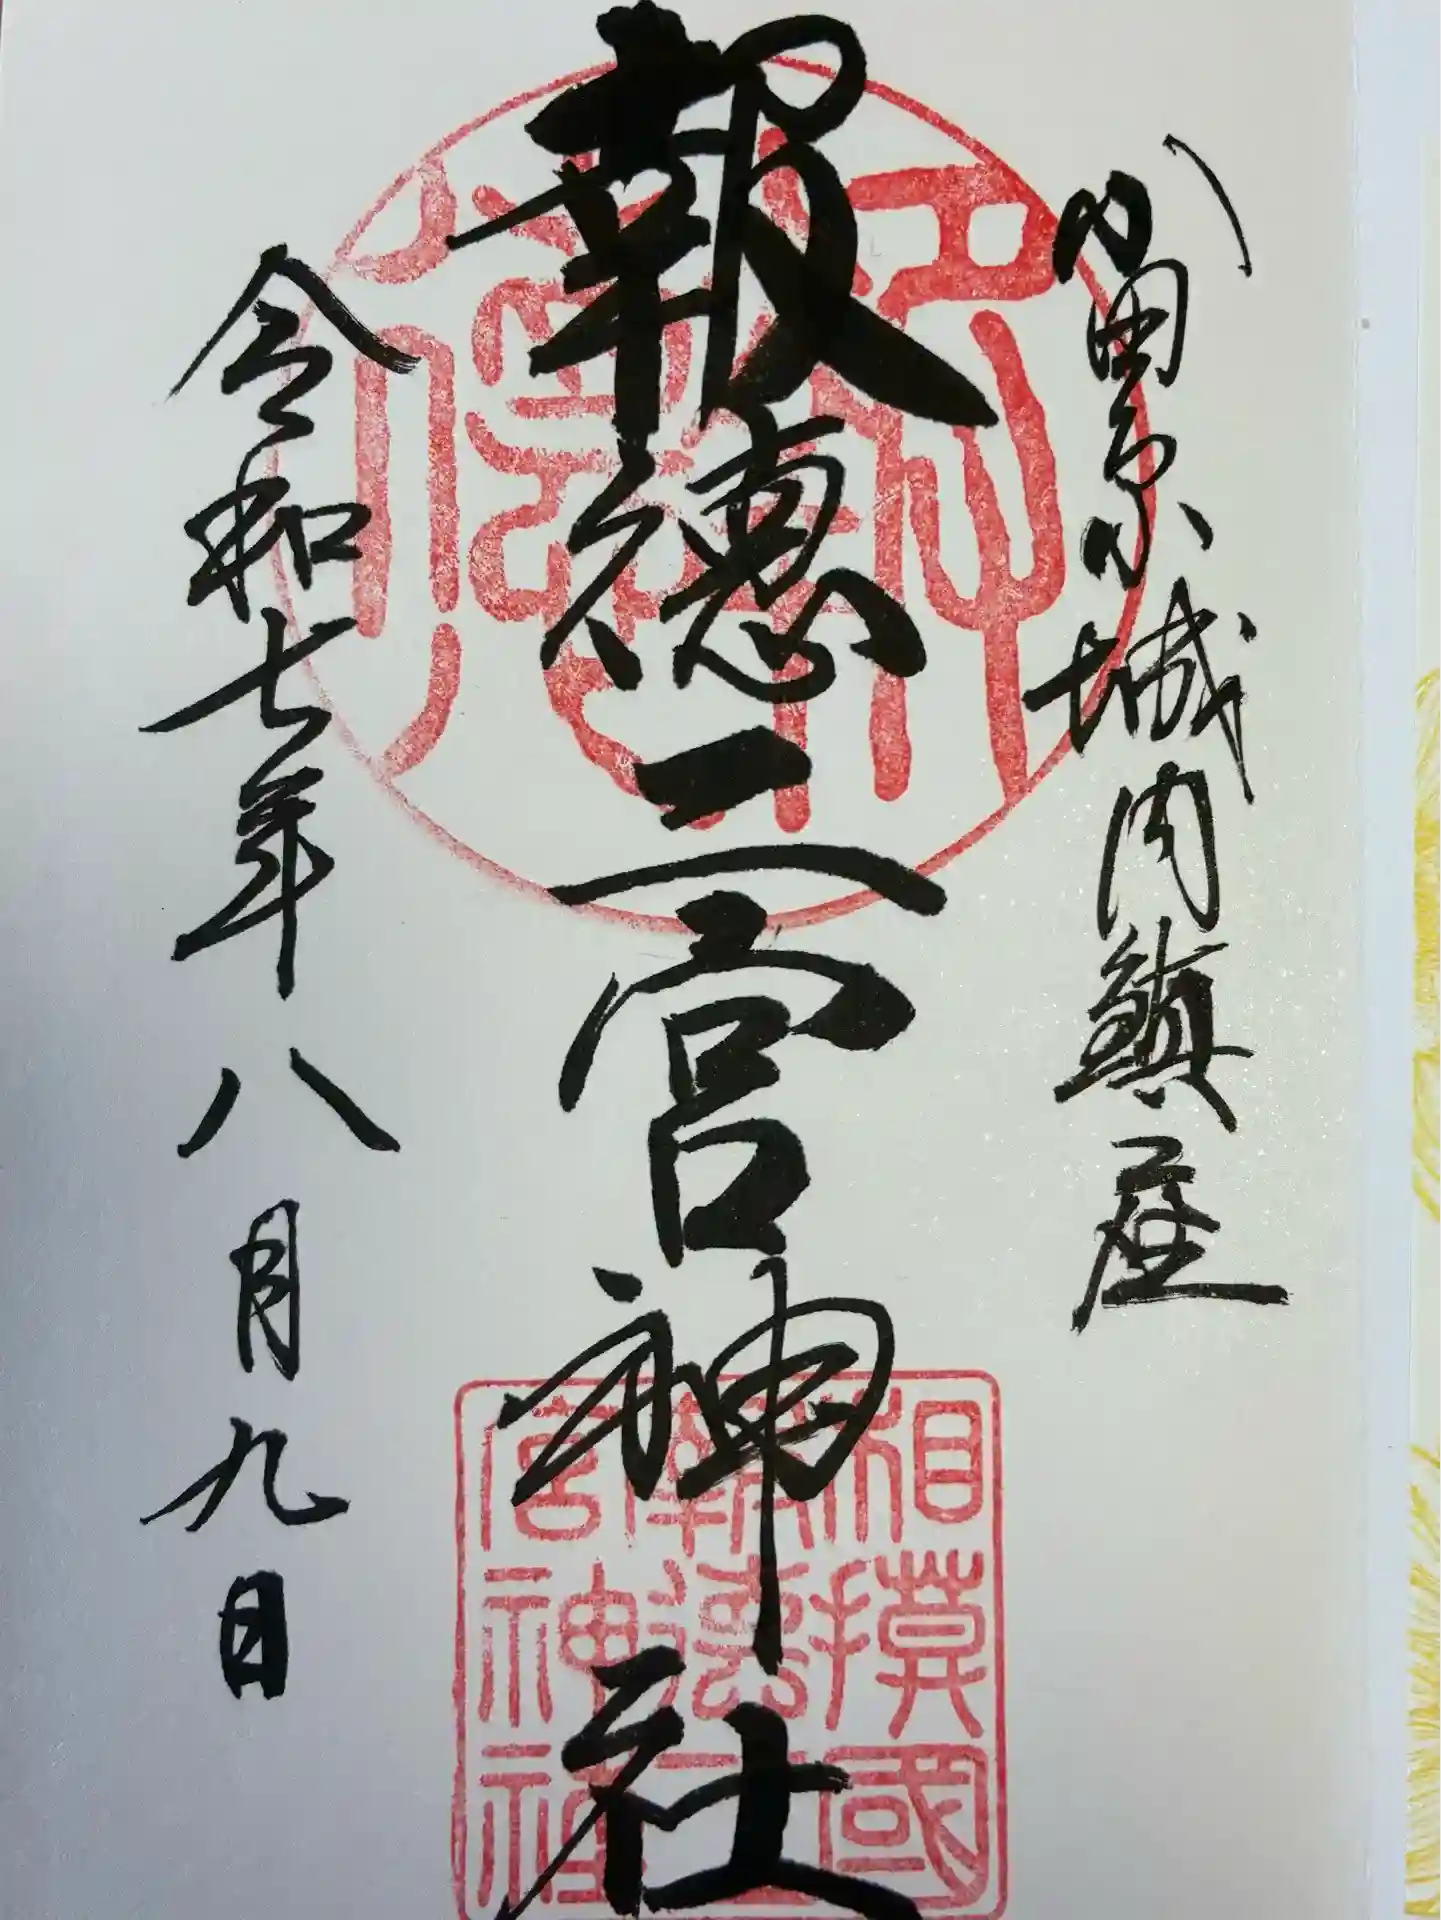 小田原城内鎮座
報徳二宮神社
令和七年八月九日
相模國
報徳二
宮神社